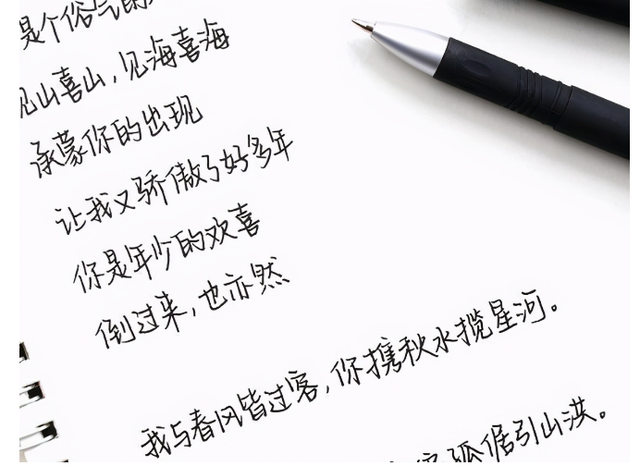 是个俗气
见山喜山，见海喜海
承蒙你的出现
让我又骄傲了好多年
你是年少的欢喜
倒过来，也亦然
我与春风皆过客，你携秋水揽星河。
引山洪。